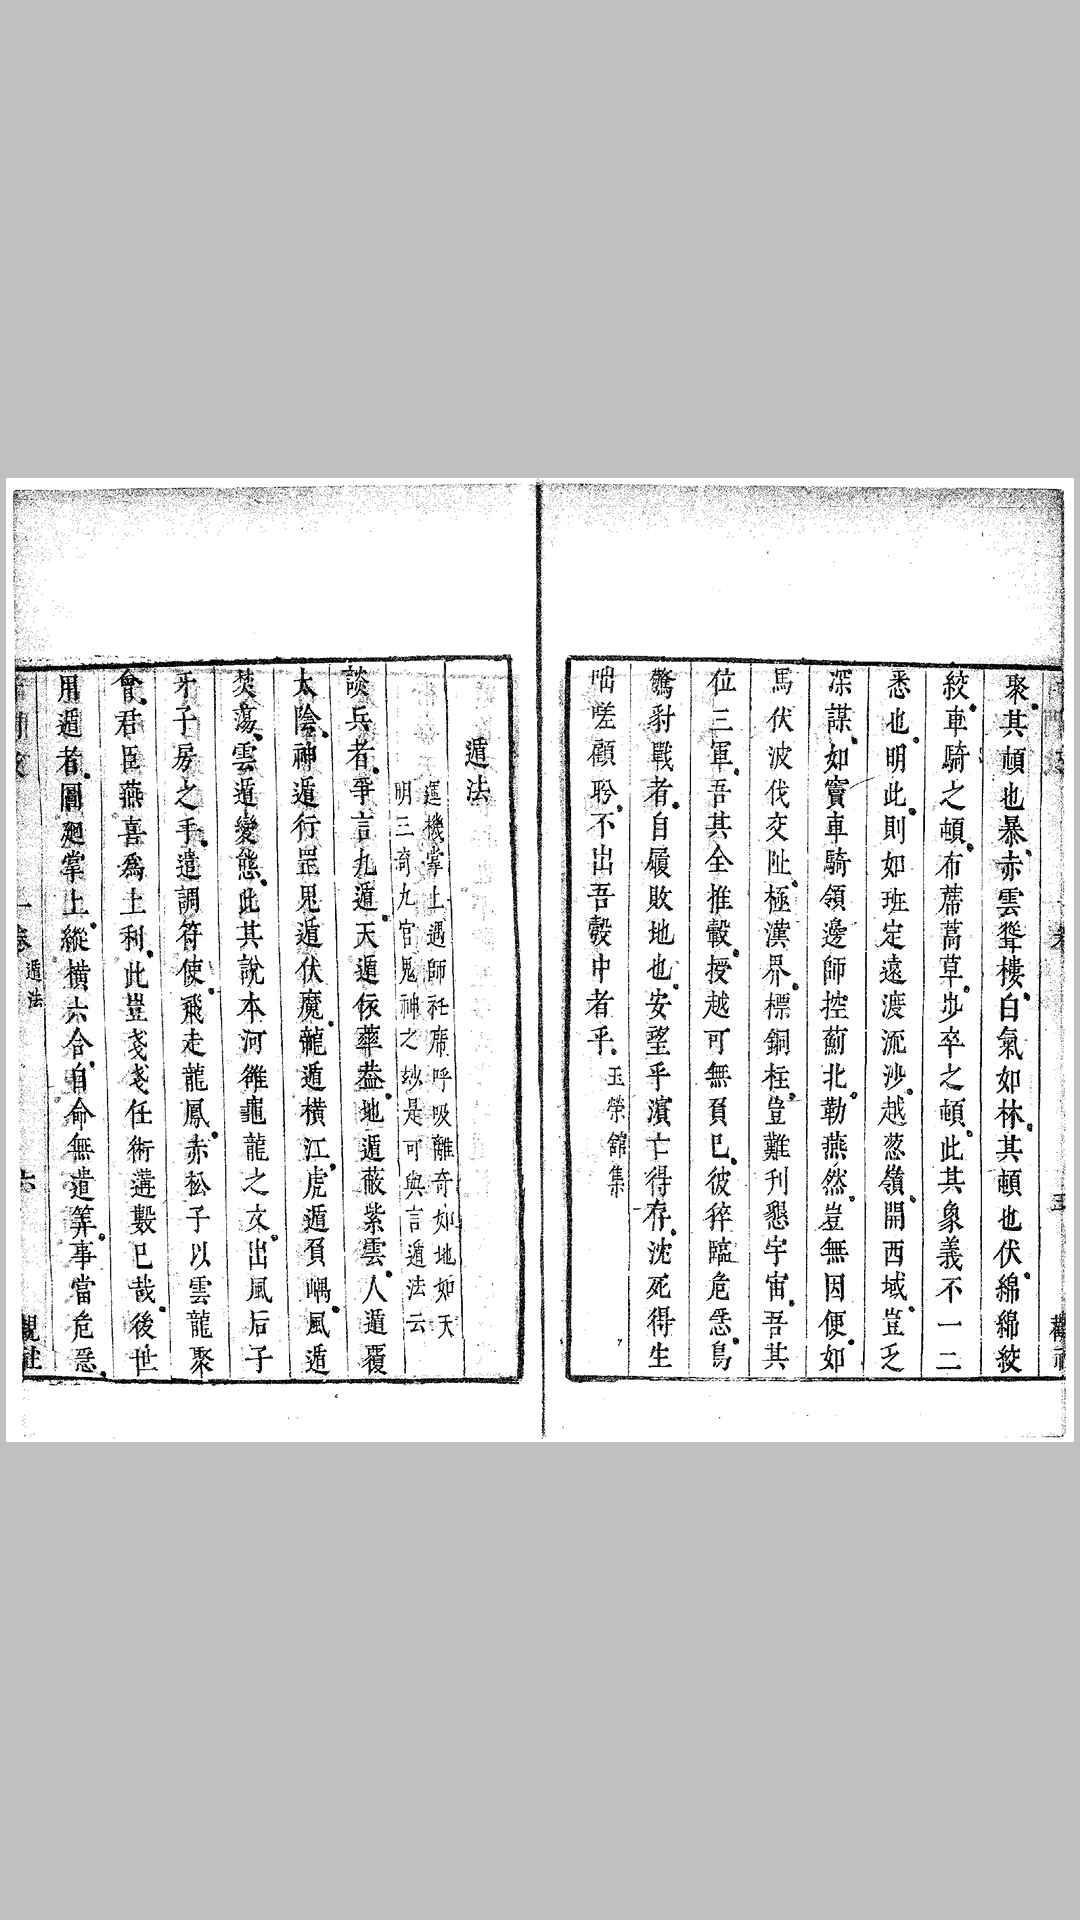 聚其頓也暴赤雲聳樓白氣如林其頓也伏綿綿絞
絞車騎之頓布蓆蒿草步卒之頓此其象義不一二
悉也明此則如班定遠渡流沙越葱嶺開西域豈乏
深謀如竇車騎領邊師控薊北勒燕然豈無因便如
馬伏波伐交趾極漢界標銅柱豈難刊懇宇宙吾其
位三軍吾其全推轂授越可無負已彼猝臨危恙鳥
驚豺戰者自履敗地也安望乎濱亡得存沈死得生
咄嗟顧盻不出吾彀中者乎 玉榮舘集
遁法
運機掌上遇師祍席呼吸離奇如地如天
明三竒九官鬼神之妙是可與言遁法云
談兵者爭言九遁天遁依華葢地遁蔽紫雲人遁覆
太陰神遁行罡鬼遁伏魔龍遁橫江虎遁負嵎風遁
焚蕩雲遁變態此其說本河雒龜龍之文出風后子
牙子房之手遣調符使飛走龍鳳赤松子以雲龍聚
會君臣燕喜為上利此豈戔戔任術溝數已哉後世
用遁者圖廻掌上縱橫六合自命無遺筭事當危急
一卷 遁法 六